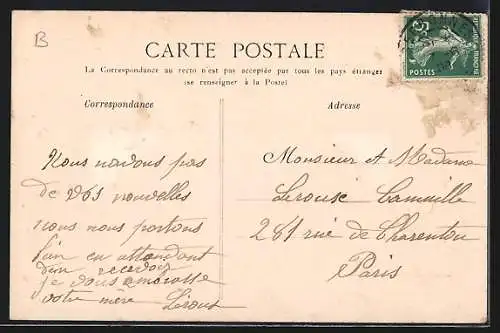 B
CARTE POSTALE
La Correspondance au recto n'est pas acceptée par tous les pays étrangers
(se renseigner à la Poste)
Correspondance
Adresse
5
POSTES
Nous navons pas
de vos nouvelles
nous nous portons
bien en attendant
d'en recevoir
je vous embrasse
votre mère Lerous
Monsieur et Madame
Lerouse Camaille
281 rue de Charenton
Paris